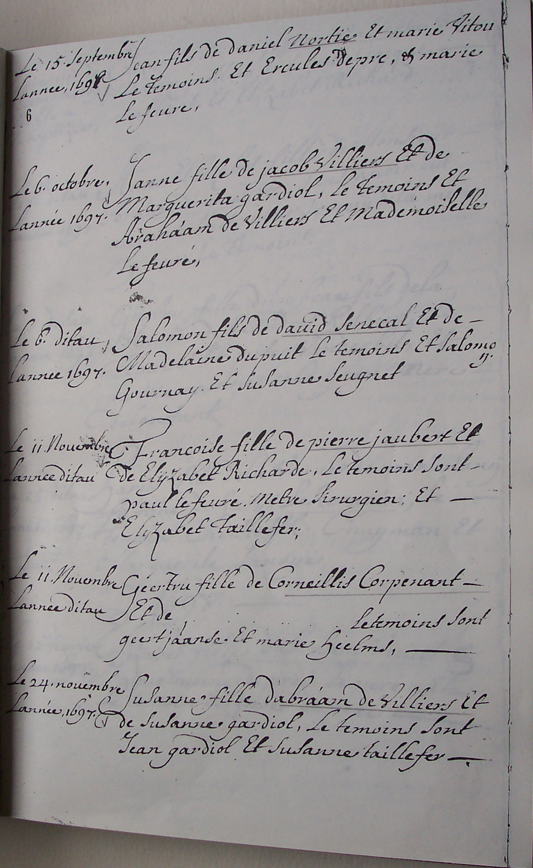 Le 15. Septembre Jean fils de daniel Nortie Et marie Vitou
Lannee, 169 Le temoins. Et Ercules depre, & marie
6 Le feure,
Le 6. octobre, Janne fille de jacob Villiers Et de
Lannée 1697. Marguerita gardiol, Le temoins Et
Abrahaam de Villiers Et Mademoiselle
Le feuré,
Le 6. ditau, Salomon fils de dauid Senecal Et de –
Lannee 1697. Madelaine du puit Le temoins Et Salomon
Gournay. Et Susanne Seugnet
Le 11 Novembre Francoise fille de pierre jaubert Et
Lannee ditau de Elyzabet Richarde, Le temoins sont –
paul le feuré. Metre Sirurgien; Et —
Elyzabet Taillefer;
Le 11. Novembre Geertru fille de Corneillis Corpenant —
Lannee ditau Et de Le temoins sont
geertjaanse Et marie Heelms, —
Le 24. novembre Susanne, fille dabraam de Villiers Et
Lannée, 1697. de Susanne gardiol, Le temoins sont
Jean gardiol Et Susanne taillefer —